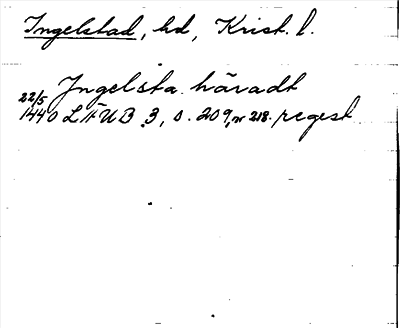 Ingelstad, hd, Krist. l.
Jngelsta häradt
22/5
1440 LÄUB 3, s. 209, nr 218. regest